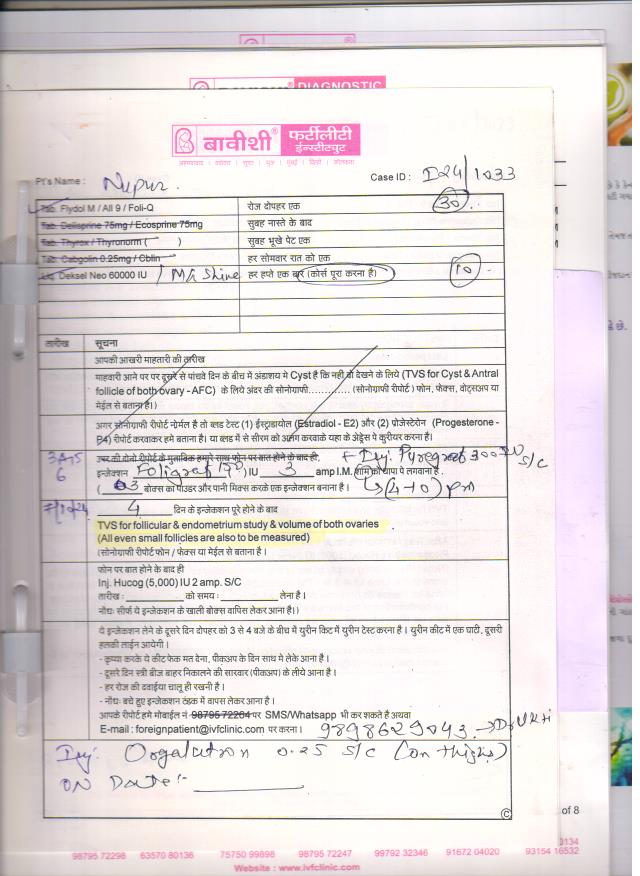 DIAGNOSTIC
बावीशी फर्टीलीटी
ईन्स्टीट्युट
Pt's Name : Nupur. Case ID : I24/1033
Tab. Flydol M / All 9 / Foli-Q रोज दोपहर एक 30
Tab. Delisprine 75mg / Ecosprine 75mg सुबह नास्ते के बाद
Tab. Thyrox / Thyronorm ( ) सुबह भूखे पेट एक
Tab. Cabgolin 0.25mg / Cblin हर सोमवार रात को एक
Deksel Neo 60000 IU / हर हप्ते एक बार (कोर्स पूरा करना है) 10
तारीख सूचना
आपकी आखरी माहतारी की तारीख
माहवारी आने पर पर दूसरे से पांचवे दिन के बीच में अंडाशय में Cyst है कि नही वो देखने के लिये (TVS for Cyst & Antral
follicle of both ovary - AFC) के लिये अंदर की सोनोग्राफी............ (सोनोग्राफी रीपोर्ट) फोन, फेक्स, वोट्सअप या
मेईल से बताना है।)
अगर सोनोग्राफी रीपोर्ट नोर्मल है तो ब्लड टेस्ट (1) ईस्ट्राडायोल (Estradiol - E2) और (2) प्रोजेस्टेरोन (Progesterone -
P4) रीपोर्ट करवाकर हमे बताना है। या ब्लड में से सीरम को अलग करवाके यहा के अेड्रेस पे कुरीयर करना है।
उपर की दोनो रीपोर्ट के मुताबिक हमारे साथ फोन पर बात होने के बाद ही, + Inj. Puregraf 300 IU S/C
इन्जेक्शन Foligraf 150 IU 3 amp I.M. शाम को थापा पे लगवाना है .
( 03 बोक्स का पाउडर और पानी मिक्स करके एक इन्जेक्शन बनाना है।
4 दिन के इन्जेक्शन पूरे होने के बाद
TVS for follicular & endometrium study & volume of both ovaries
(All even small follicles are also to be measured)
(सोनोग्राफी रीपोर्ट फोन / फेक्स या मेईल से बताना है।
फोन पर बात होने के बाद ही
Inj. Hucog (5,000) IU 2 amp. S/C
तारीख : को समय : लेना है।
नोंधः सीर्फ ये इन्जेक्शन के खाली बोक्स वापिस लेकर आना है।)
ये इन्जेकशन लेने के दूसरे दिन दोपहर को 3 से 4 बजे के बीच में युरीन किट में युरीन टेस्ट करना है। युरीन कीट में एक घाटी, दूसरी
हलकी लाईन आयेगी।
- कृप्या करके ये कीट फेक मत देना, पीकअप के दिन साथ मे लेके आना है।
- दूसरे दिन स्त्री बीज बाहर निकालने की सारवार (पीकअप) के लीये आना है।
- हर रोज की दवाईया चालू ही रखनी है।
- नोंधः बचे हुए इन्जेक्शन ठंडक में वापस लेकर आना है।
आपके रीपोर्ट हमे मोबाईल नं 98795 72264 पर SMS/Whatsapp भी कर सकते है अथवा
E-mail : foreignpatient@ivfclinic.com पर करना। 9898629043
Inj:- Orgalutron 0.25 S/C (on thighs)
ON Date:-
©
of 8
98795 72298 63570 80136 75750 99898 98795 72247 99792 32346 91672 04020 93154 16532
Website : www.ivfclinic.com